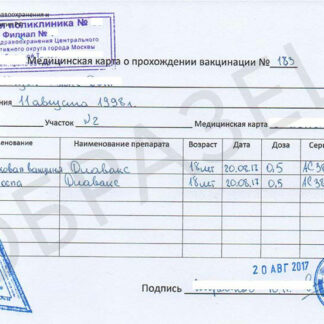 равоохранения и
я поликлиника №
Филиал №
дравоохранения Центрального
тивного округа города Москвы
Медицинская карта о прохождении вакцинации № 185
ния 11 августа 1998г.
Участок №2 Медицинская карта
менование Наименование препарата Возраст Дата Доза Сери
ковая вакцина Олавакс 18лет 20.08.17 0,5 АС38
Олавакс 18лет 20.08.17 0,5 АС38
20 АВГ 2017
Подпись
ОБРАЗЕЦ